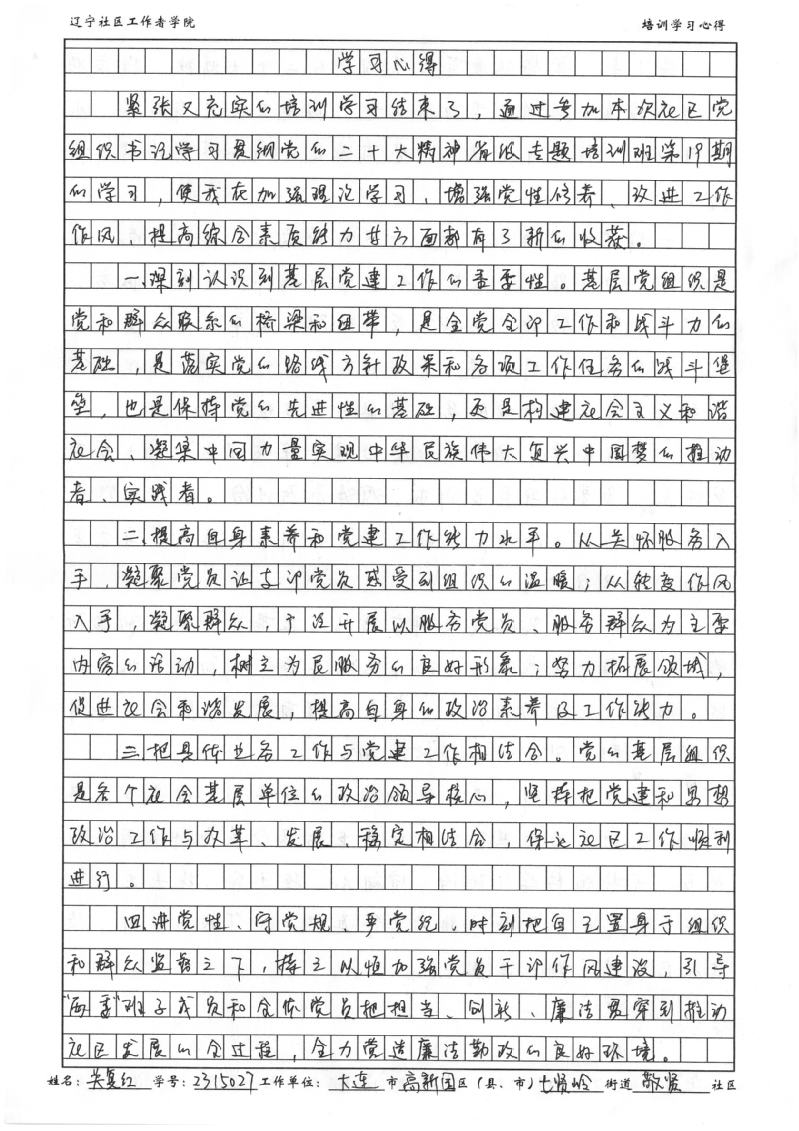 辽宁社区工作者学院 培训学习心得
学习心得
紧张又充实的培训学习结束了，通过参加本次社区党
组织书记学习贯彻党的二十大精神省级专题培训班第19期
的学习，使我在加强理论学习、增强党性修养、改进工作
作风、提高综合素质能力等方面都有了新的收获。
一、深刻认识到基层党建工作的重要性。基层党组织是
党和群众联系的桥梁和纽带，是全党全部工作和战斗力的
基础，是落实党的路线方针政策和各项工作任务的战斗堡
垒，也是保持党的先进性的基础，更是构建社会主义和谐
社会、凝集中国力量实现中华民族伟大复兴中国梦的推动
者、实践者。
二、提高自身素养和党建工作能力水平。从关怀服务入
手，凝聚党员让支部党员感受到组织的温暖；从转变作风
入手，凝聚群众，广泛开展以服务党员、服务群众为主要
内容的活动，树立为民服务的良好形象；努力拓展领域，
促进社会和谐发展，提高自身的政治素养及工作能力。
三、把具体业务工作与党建工作相结合。党的基层组织
是各个社会基层单位的政治领导核心，坚持把党建和思想
政治工作与改革、发展、稳定相结合，保证社区工作顺利
进行。
四、讲党性、守党规、严党纪，时刻把自己置身于组织
和群众监督之下，持之以恒加强党员干部作风建设，引导
“两委”班子成员和全体党员把担当、创新、廉洁贯穿到推动
社区发展的全过程，全力营造廉洁勤政的良好环境。
姓名：吴复红 学号：2315027 工作单位：大连市高新园区（县、市）七贤岭街道敬贤社区